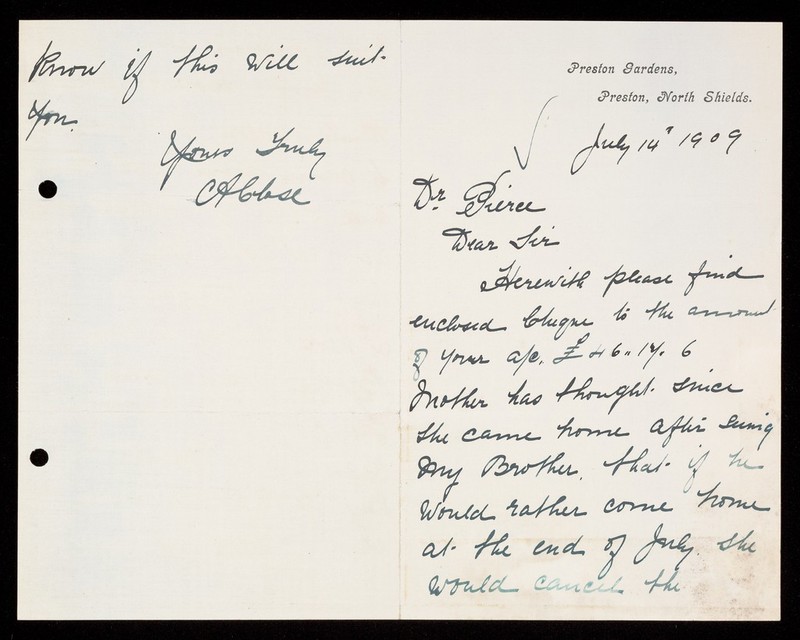 Preston Gardens,
Preston, North Shields.
July 14" 1909
Dr Pierce
Dear Sir
Herewith please find
enclosed Cheque to the amount
of your a/c. £46. 14. 6
Mother has thought since
she came home after seeing
my Brother, that if he
would rather come home
at the end of July. she
would cancel the
know if this will suit
you.
Yours Truly